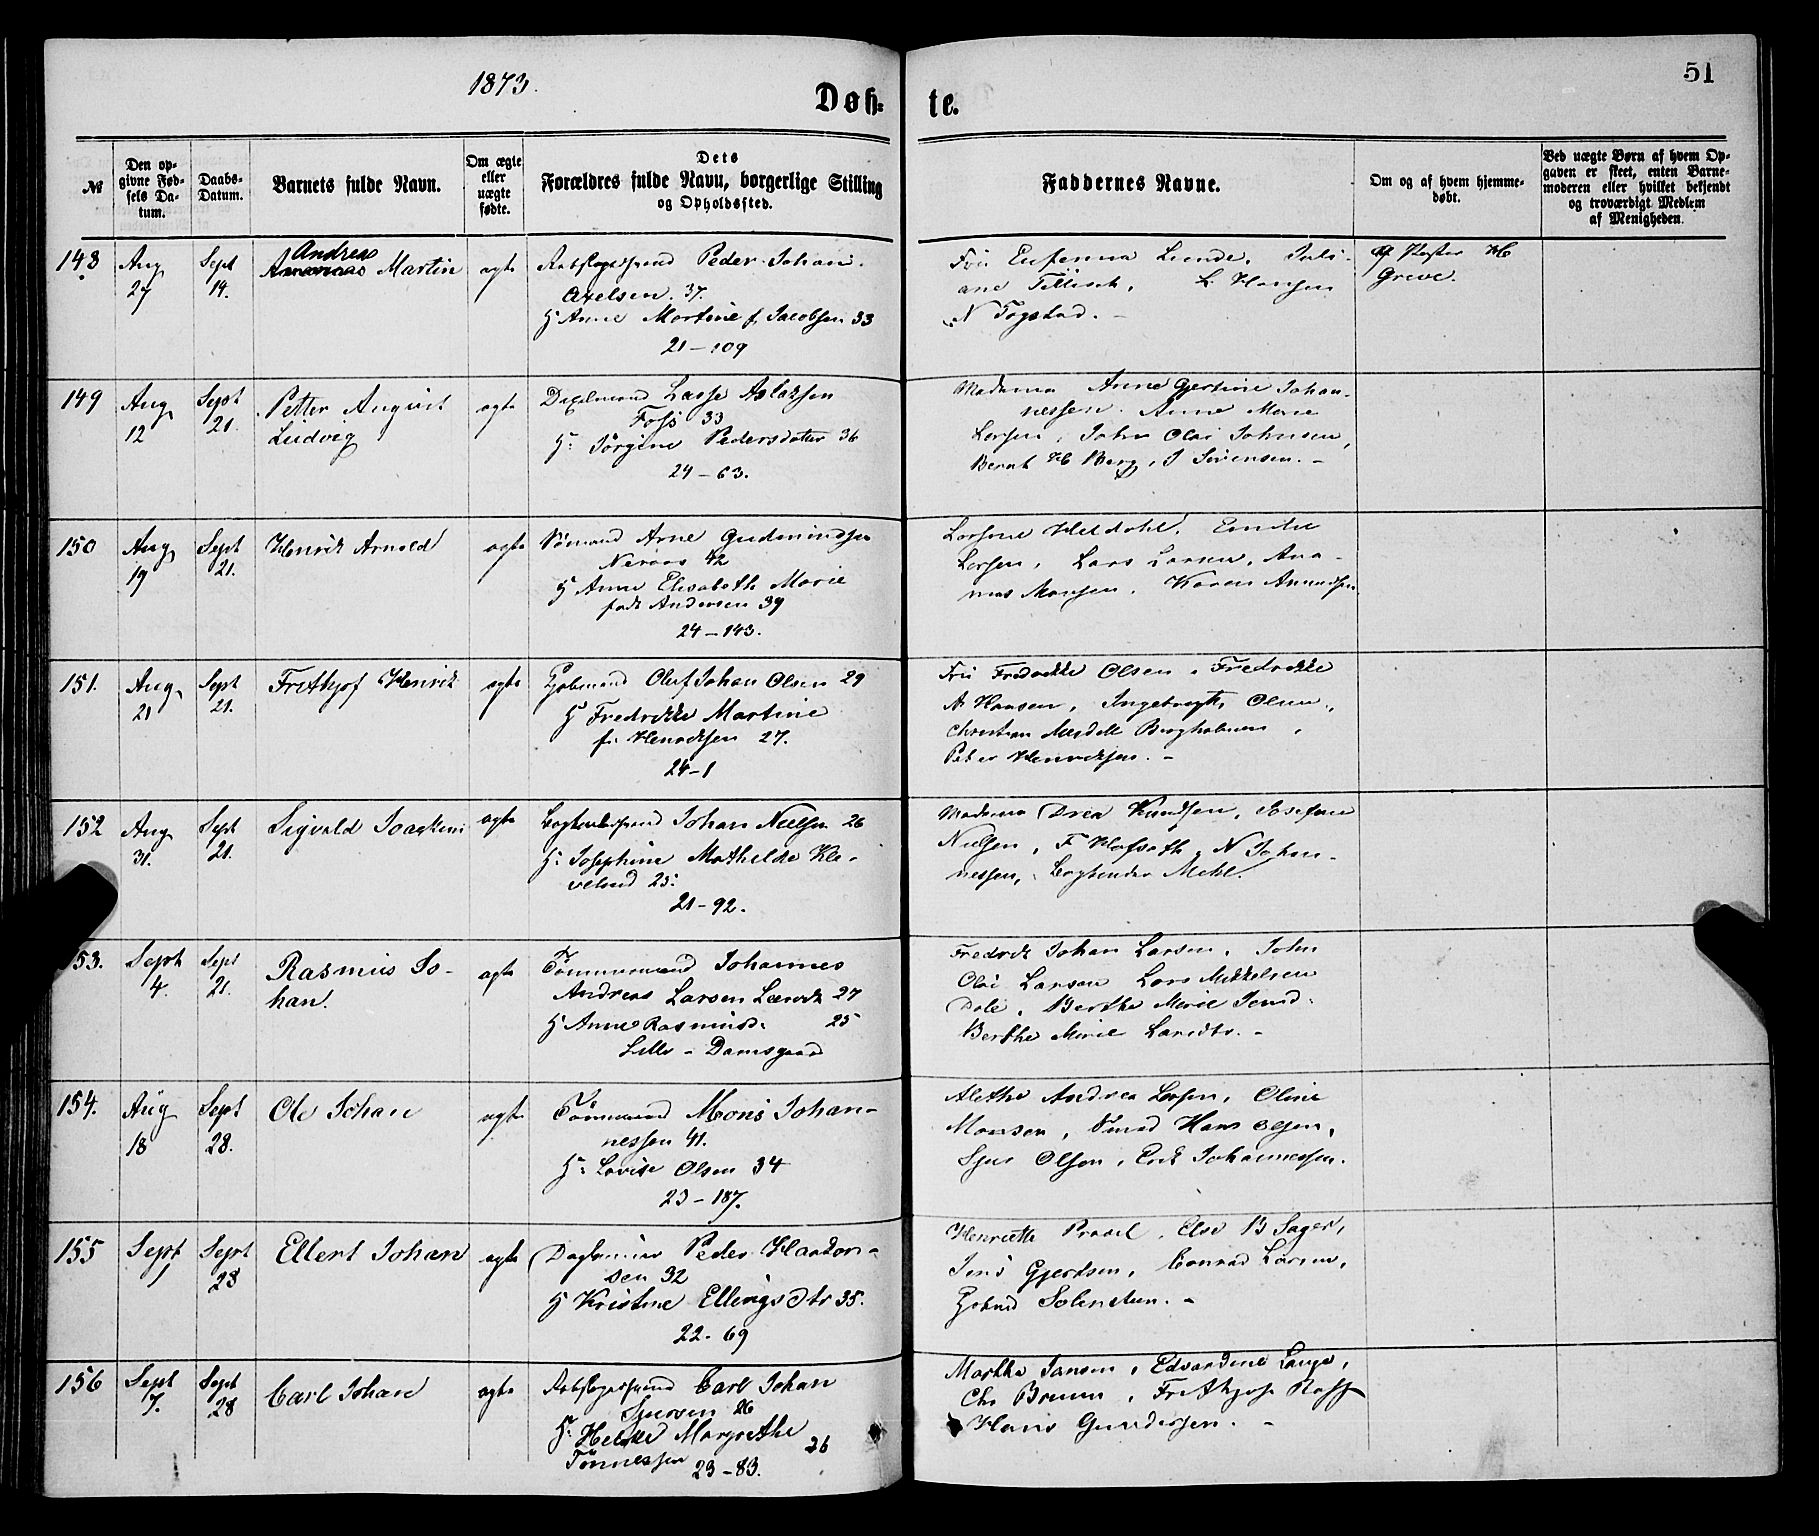 1873.
Døb-
te.
51
№
Den op-
givne Fød-
sels Da-
tum.
Daabs-
Datum.
Barnets fulde Navn.
Om ægte
eller
uægte
fødte.
Dets
Forældres fulde Navn, borgerlige Stilling
og Opholdssted.
Faddernes Navne.
Om og af hvem hjemme-
døbt.
Ved uægte Børn af hvem Op-
gaven er skeet, enten Barne-
moderen eller hvilket bekjendt
og troværdigt Medlem
af Menigheden.
148
Aug
27
Sept
14.
Andrea
Martin
ægte
Peder Johan
Axelsen. 37.
H Anne Martine f. Jacobsen 33
21-109
Eufemia Lunde, Juli-
ane Tillisch, L. Hansen
N Togstad. -
Greve.
149
Aug
12
Sept
21.
Petter August
Ludvig
ægte
Lasse Aslaksen
Foss 33
H: Jørgine Pedersdatter 36
24-63.
Madama Anne Gjertine Johan-
nessen. Anne Marie
Larsen, John Olai Johnsen,
Bernt H Berg, J Sørensen. -
150
Aug
19
Sept
21.
Henrik Arnold
ægte
Sømand Arne Gudmundsen
Neraas 42
H Anne Elisabeth Marie
født Andersen 39
24-143.
Emilie
Larsen, Lars Larsen, Ana-
nias Monsen, Karen Amundsen
151.
Aug
21
Sept
21.
Frithjof Henrik
ægte
Kjøbmand Oluf Johan Olsen 29
H Fredrikke Martine
f. Henriksen 27.
24-1
Fru Fredrikke Olsen, Fredrikke
A Hansen, Ingebregt Olsen,
Christian
Peter Henriksen. -
152
Aug
31.
Sept
21.
Sigvald Joachim
ægte
Johan Nielsen 26
H: Josephine Mathilde Kle-
veland 25.
21-92.
Madama Drea Knudsen, Josefine
Nielsen, F Hofseth, N Johan-
nessen, Bogbinder Mehl.
153.
Sept
4.
Sept
21.
Rasmus Jo-
han.
ægte
Tømmermand Johannes
Andreas Larsen Lærvik 27
H Anne Rasmusd. 25
Lille-Damsgaard
Fredrik Johan Larsen, John
Olai Larsen Lars Mikkelsen
Dale, Berthe Marie
Berthe Marie Larsdtr. -
154.
Aug
18
Sept
28.
Ole Johan
ægte
Mons Johan-
nessen 41.
H: Lovise Olsen 34
23-187.
Alethe Andrea Larsen, Oline
Monsen, Smed Hans Olsen,
Sjur Olsen, Erik Johannessen.
155
Sept
1
Sept
28
Ellert Johan
ægte
Peder Haldor-
sen 32
H Kristine Ellingsdtr 35.
22-69
Henriette Else B Sager,
Jens Gjertsen, Conrad Larsen,
156
Sept
7.
Sept
28
Carl Johan
ægte
Carl Johan
Sjursen 26
H: Helene Margrethe
Tønnessen 26
23-83.
Martha Jansen, Edvardine Lange,
Chr Bruun, Frithjof
Hans Gundersen. -